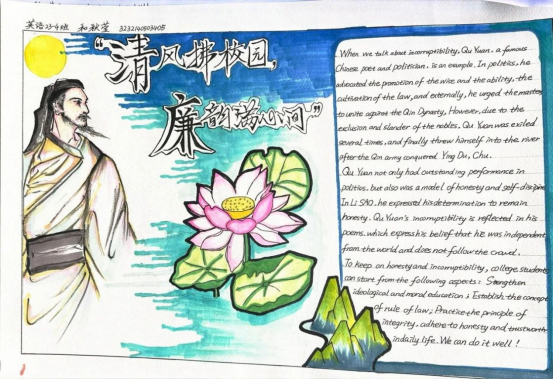 英语23-4班 和秋莹 3232140503405
“清风拂校园,
廉韵满心间”
When we talk about incorruptibility, Qu Yuan, a famous
Chinese poet and politician, is an example. In politics, he
advocated the promotion of the wise and the ability, the
cultivation of the law, and externally, he urged the masters
to unite against the Qin Dynasty, However, due to the
exclusion and slander of the nobles, Qu Yuan was exiled
several times, and finally threw himself into the river
after the Qin army conquered Ying Du, Chu.
Qu Yuan not only had outstanding performance in
politics, but also was a model of honesty and self-discipine
In LI SAO, he expressed his determination to remain
honesty. Qu Yuan's incorruptibility is reflected in his
poems, which express his belief that he was independent
from the world and does not follow the crowd.
To keep on honesty and incorruptibility, college students
can start from the following aspects: Strengthen
ideological and moral education; Establish the concept
of rule of law; Practice the principle of
integrity, adhere to honesty and trustworth
in daily life. We can do it well!